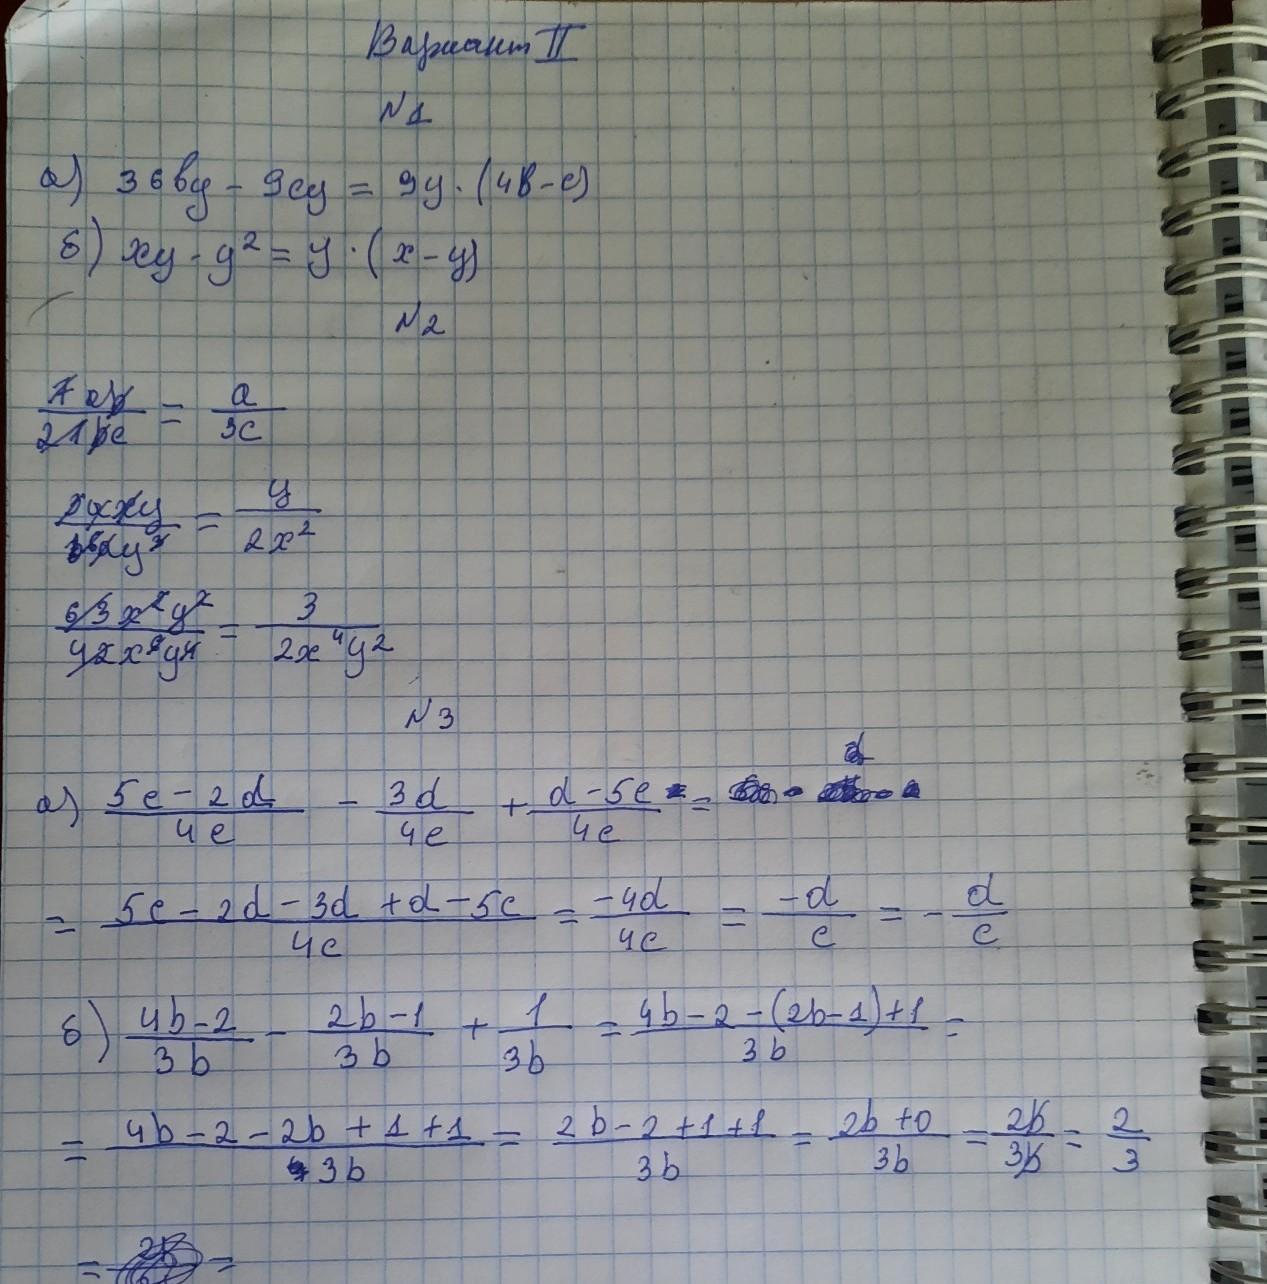 Вариант II
N1
а) 36by - 9cy = 9y · (4b - c)
б) xy - y² = y · (x - y)
N2
7ab/21bc = a/3c
= y/2x²
63x²y²/42x⁶y⁴ = 3/2x⁴y²
N3
а) 5c - 2d/4c - 3d/4c + d - 5c/4c =
= 5c - 2d - 3d + d - 5c/4c = -4d/4c = -d/c = - d/c
б) 4b-2/3b - 2b-1/3b + 1/3b = 4b-2-(2b-1)+1/3b =
= 4b-2-2b+1+1/3b = 2b-2+1+1/3b = 2b+0/3b = 2b/3b = 2/3
= =